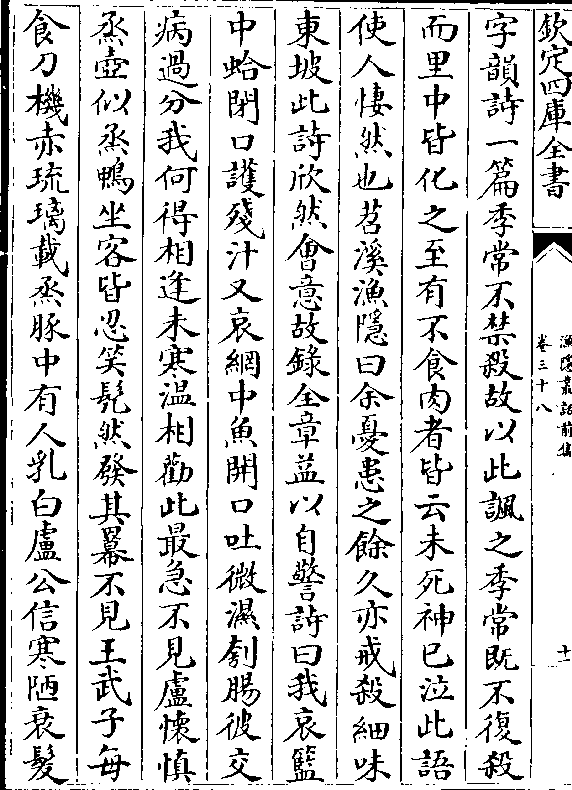 欽定四庫全書
漁隱叢話前集
卷三十八
十一
字韻詩一篇季常不禁殺故以此諷之季常既不復殺
而里中皆化之至有不食肉者皆云未死神已泣此語
使人悽然也苕溪漁隱曰余憂患之餘久亦戒殺細味
東坡此詩欣然會意故錄全章益以自警詩曰我哀籃
中蛤閉口護殘汁又哀網中魚開口吐微濕刳腸彼交
病過分我何得相逢未寒温相勸此最急不見盧懷慎
烝壺似烝鴨坐客皆忍笑髡然發其羃不見王武子每
食刀機赤琉璃載烝豚中有人乳白盧公信寒陋衰髮